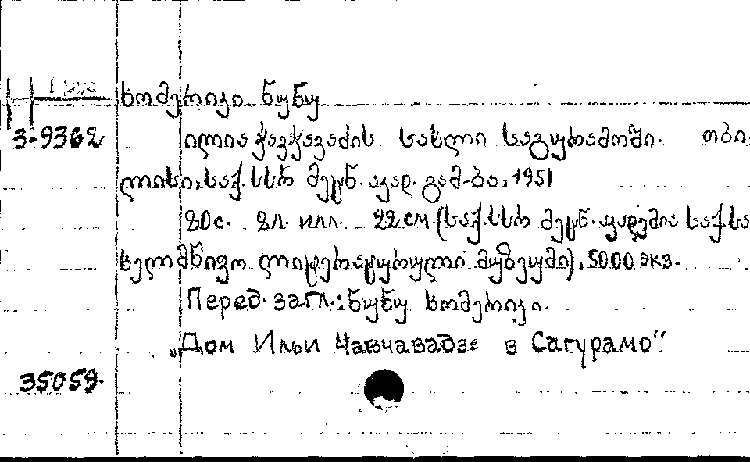 ხომერიკი ნუნუ
3-9362 ილია ჭავჭავაძის სახლი საგურამოში. თბი
ლისი, საქ. სსრ მეცნ. აკად. გამ-ბა, 1951
80с. 2л. илл. 22см (საქ. სსრ მეცნ. აკადემია საქ. სა
ხელმწიფო ლიტერატურული მუზეუმი), 5000 экз.
Перед. загл.: ნუნუ ხომერიკი.
„Дом Ильи Чавчавадзе в Сагурамо"
35059.